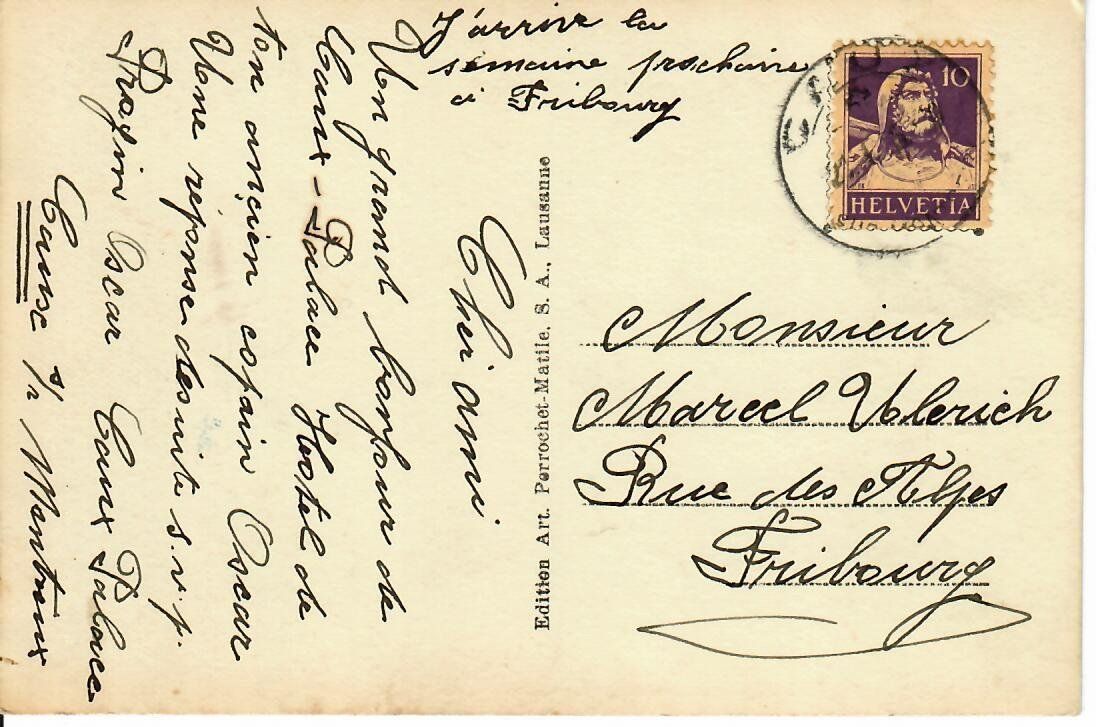 J'arrive la
semaine prochaine
à Fribourg
Cher ami
Un grand bonjour de
Caux-Palace Hotel de
ton ancien copain Oscar
Une réponse desuite s.v.p.
Oscar Caux Palace
s/ Montreux
Edition Art. Perrochet-Matile, S. A., Lausanne
10
HELVETIA
Monsieur
Marcel Ulrich
Rue des Alpes
Fribourg